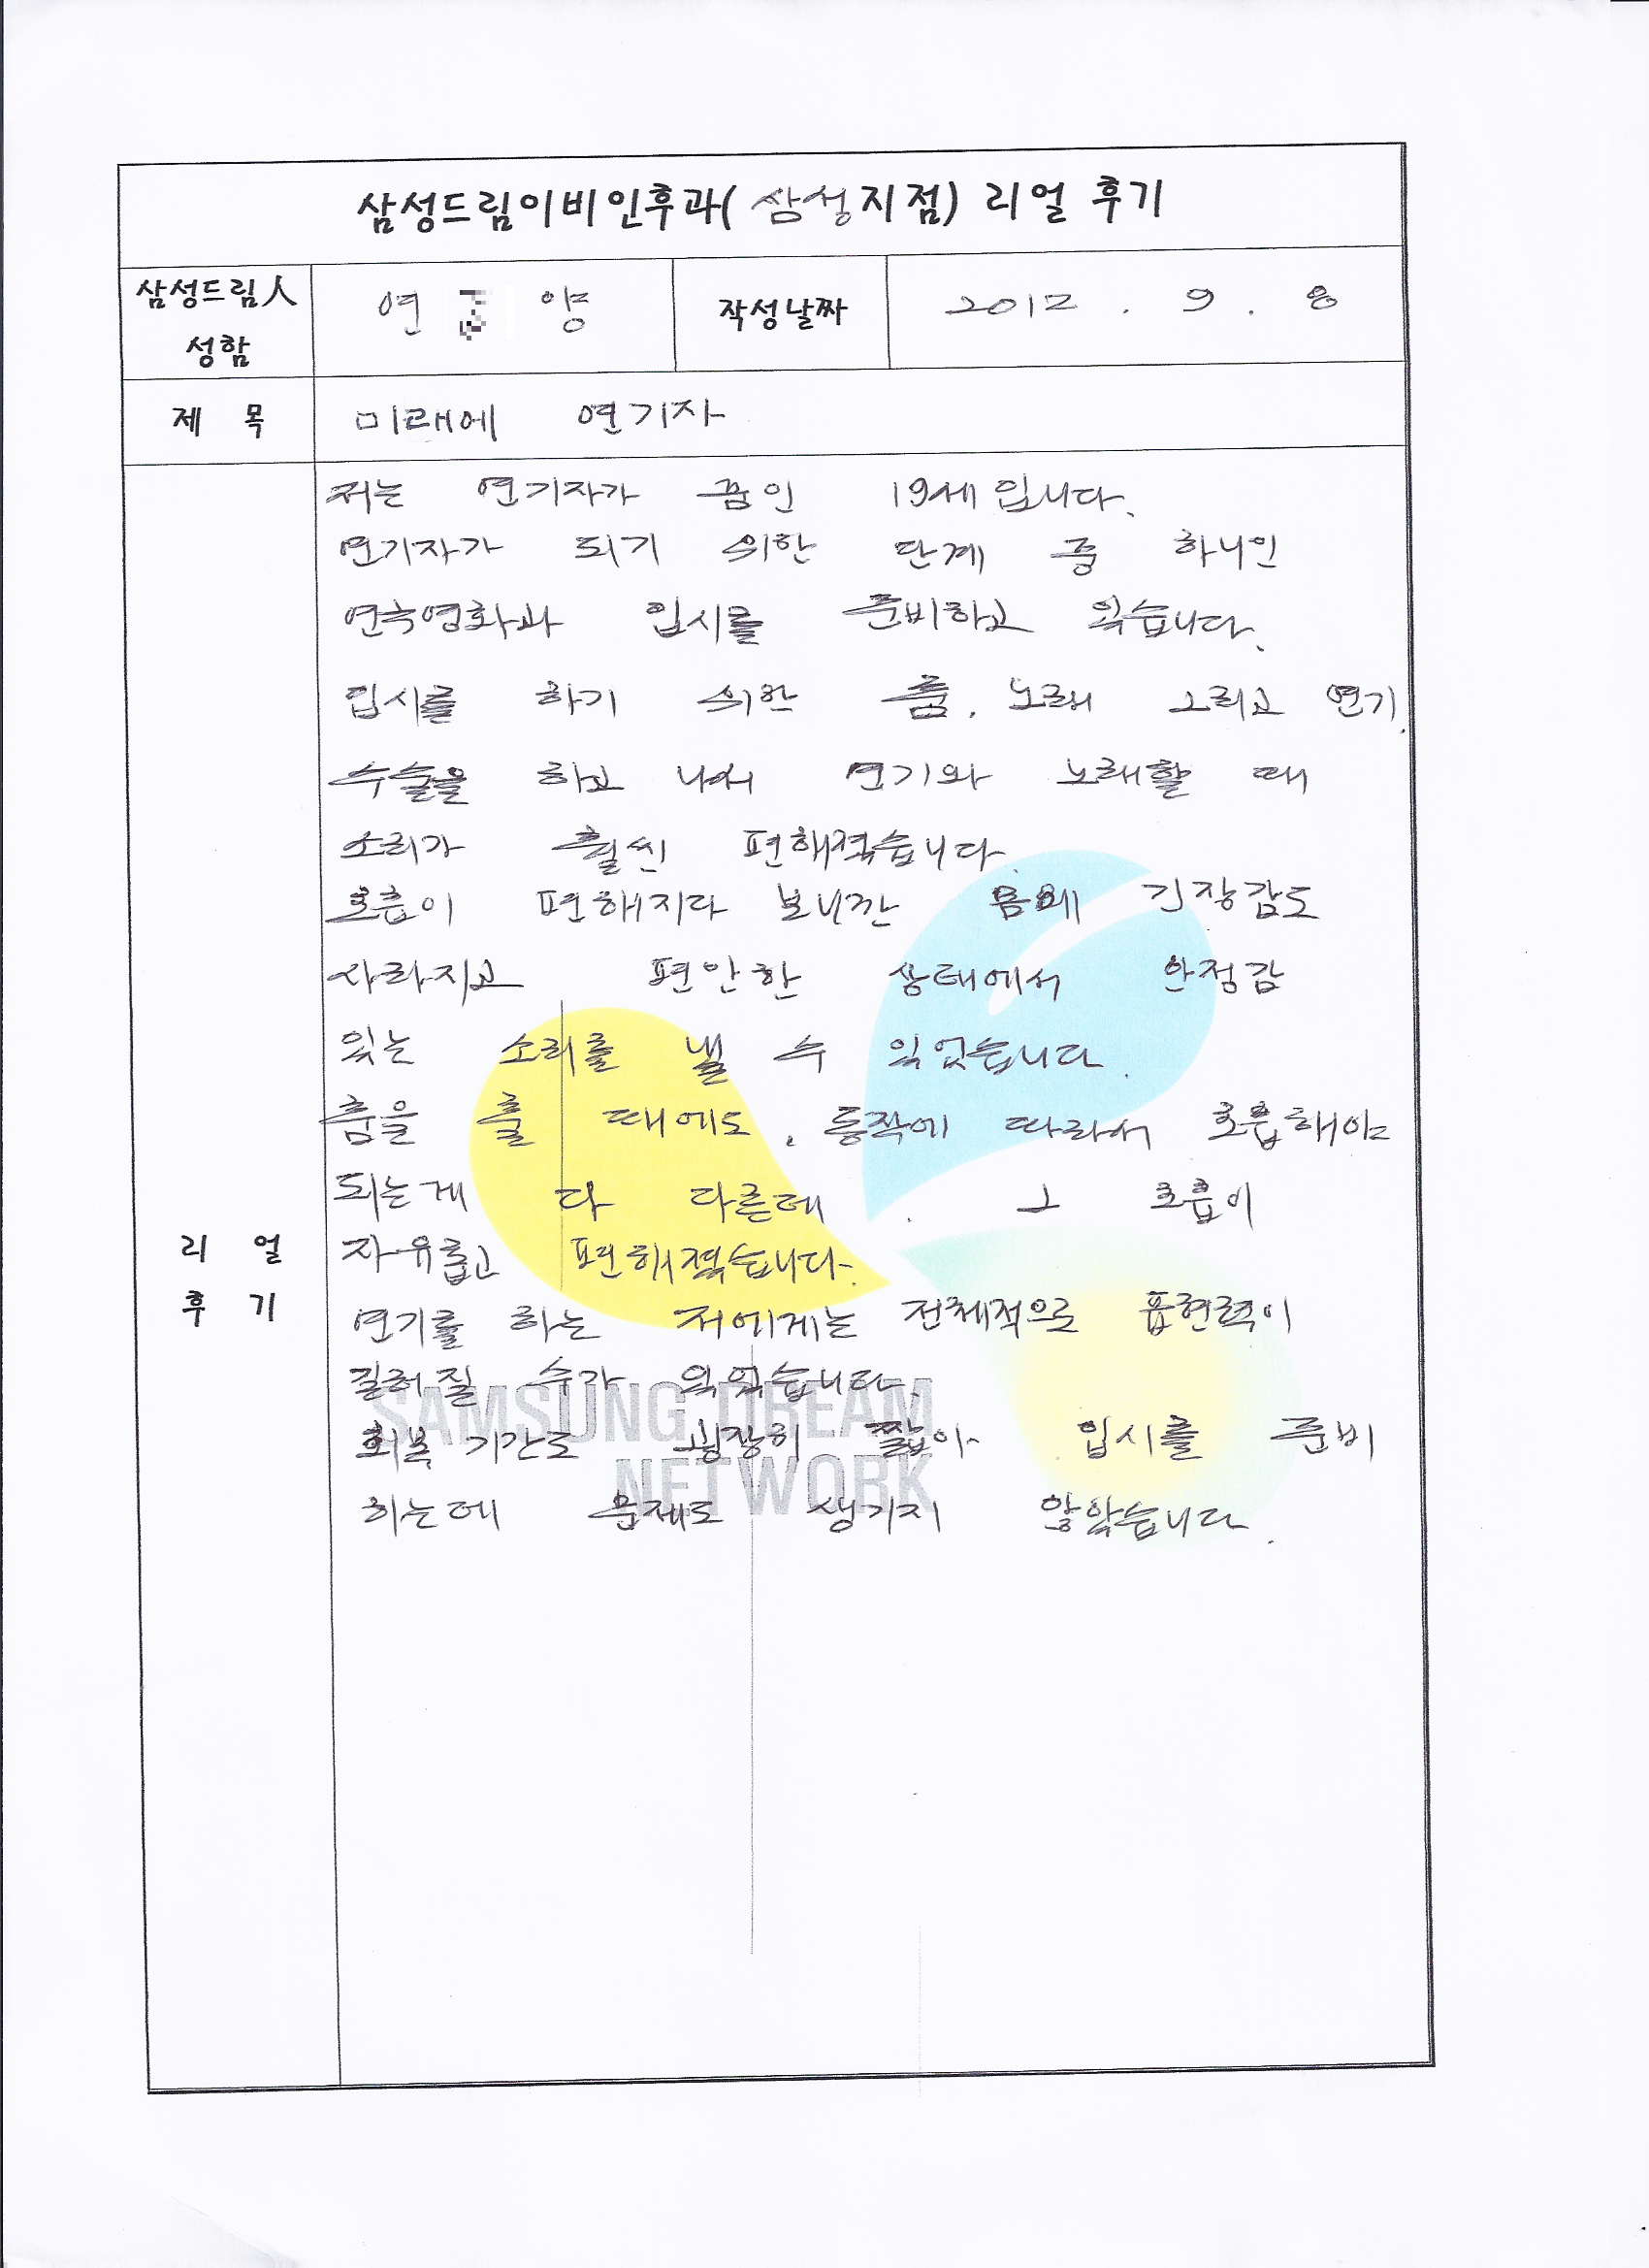 삼성드림이비인후과( 삼성지점) 리얼 후기
삼성드림人 성함
연 양
작성날짜
2012 . 9 . 8
제 목
미래에 연기자
리 얼 후 기
저는 연기자가 꿈인 19세입니다.
연기자가 되기 위한 단계 중 하나인
연극영화과 입시를 준비하고 있습니다.
입시를 하기 위한 춤, 노래 그리고 연기.
수술을 하고 나서 연기와 노래할 때
소리가 훨씬 편해졌습니다.
호흡이 편해지다 보니깐 몸에 긴장감도
사라지고 편안한 상태에서 안정감
있는 소리를 낼 수 있었습니다.
춤을 출 때에도, 동작에 따라서 호흡해야
되는게 다 다른데 . 그 호흡이
자유롭고 편해졌습니다.
연기를 하는 저에게는 전체적으로 표현력이
길러질 수가 있었습니다.
회복 기간도 굉장히 짧아 입시를 준비
하는데 문제도 생기지 않았습니다.
SAMSUNG DREAM
NETWORK